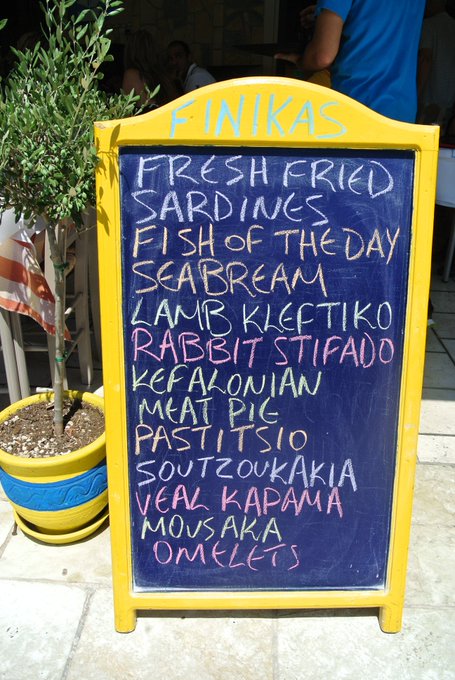 FINIKAS
FRESH FRIED
SARDINES
FISH OF THE DAY
SEABREAM
LAMB KLEFTIKO
RABBIT STIFADO
KEFALONIAN
MEAT PIE
PASTITSIO
SOUTZOUKAKIA
VEAL KAPAMA
MOUSAKA
OMELETS